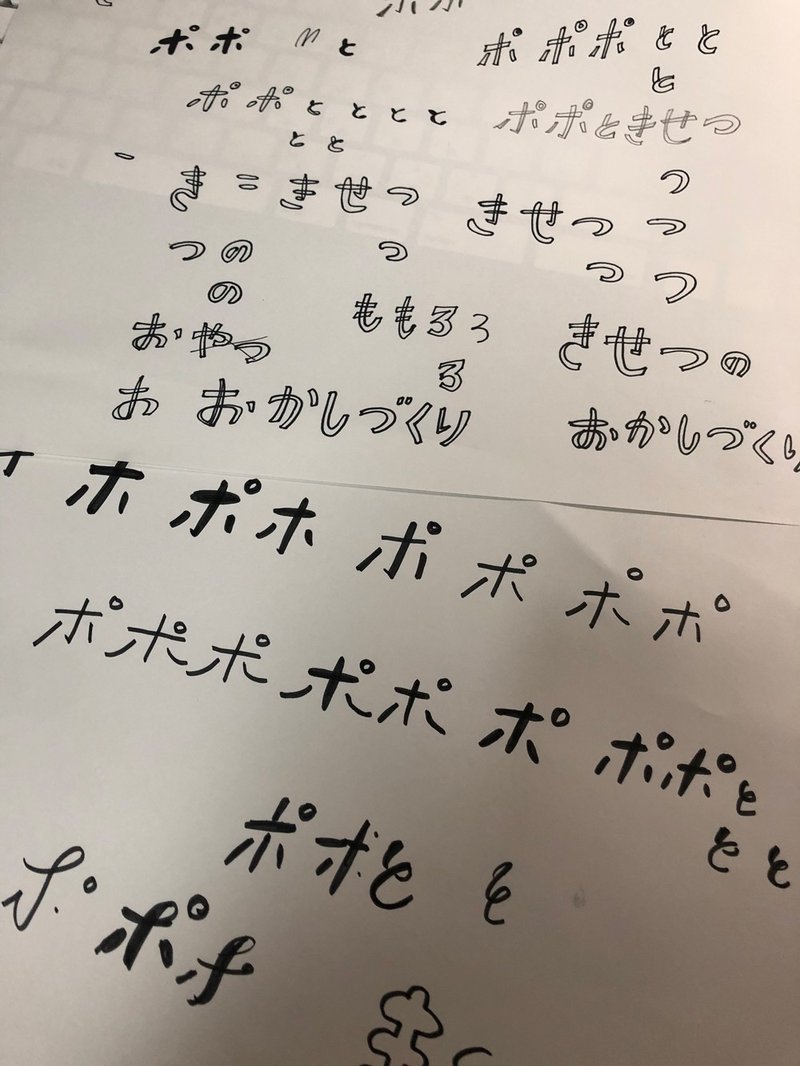 ポポ と ポ ポポ とと
と
ポポ とととと ポポときせつ
とと
き = きせつ きせつ つ
つの つ つ つ つ
の
おやつ ももろろ きせつの
ろ
お おかしづくり おかしづくり
ホ ポホ ポ ポ ポ ポ
ポポポ ポポ ポ ポポと
とと
ポポと と
ポ